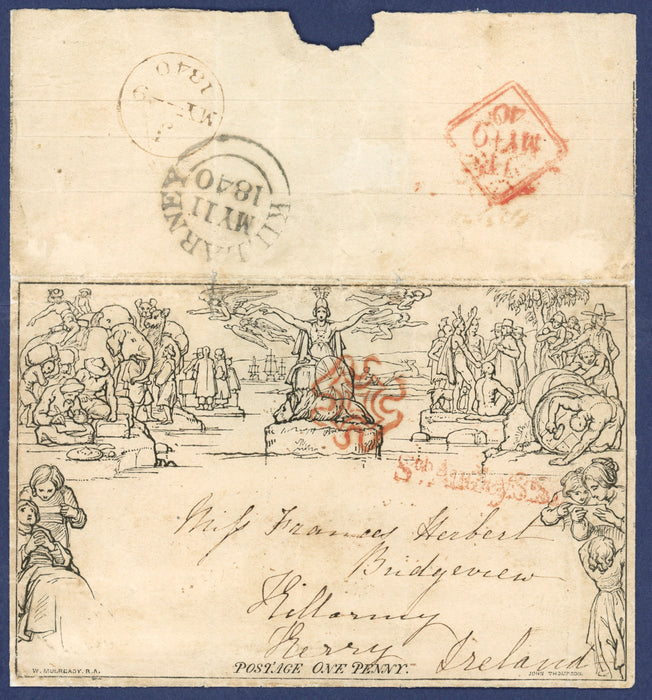 MY 9
1840
KILLARNEY
MY 11
1840
MY 9
40
Sth Audley St.
Miss Frances Herbert
Bridgeview
Killarny
Kerry Ireland
W. MULREADY. R.A.
POSTAGE ONE PENNY.
JOHN THOMPSON.